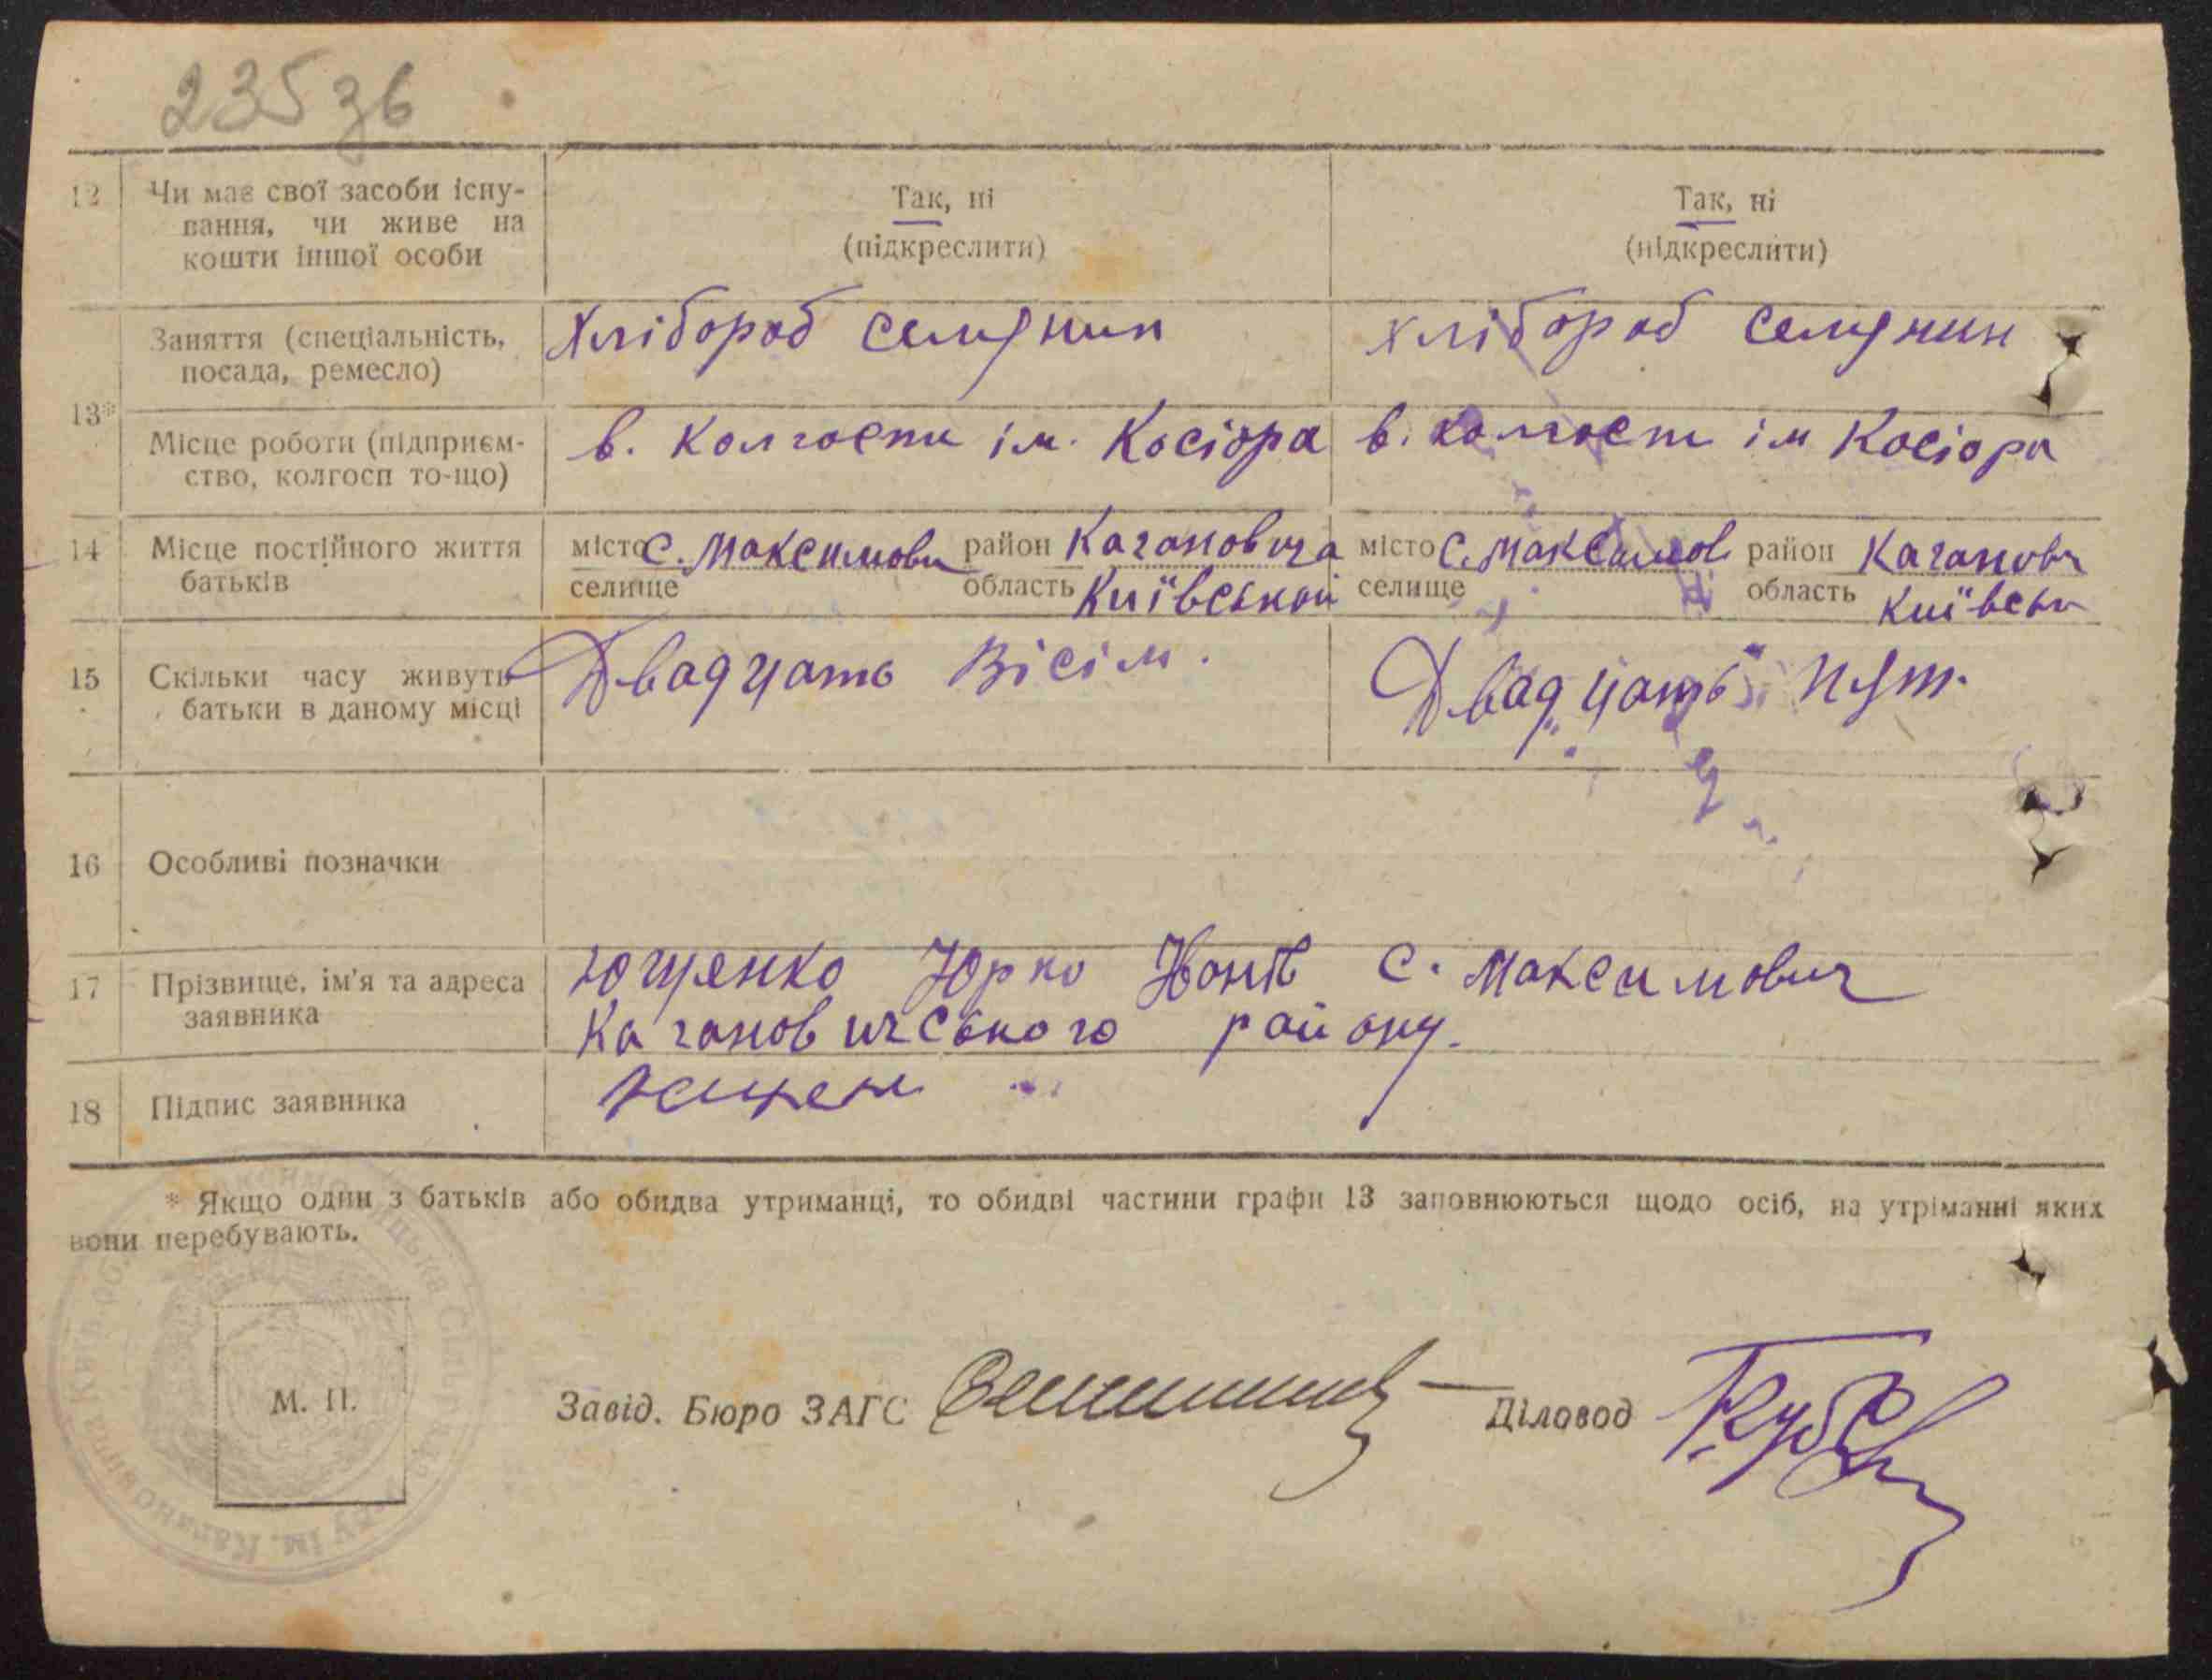 235 зб
12 Чи має свої засоби існу- Так, ні Так, ні
вання, чи живе на (підкреслити) (підкреслити)
кошти іншої особи
13* Заняття (спеціальність, Хлібороб селянин хлібороб селянин
посада, ремесло)
Місце роботи (підприєм- в. колгоспи ім. Косіора в. колгосп ім Косіора
ство, колгосп то-що)
14 Місце постійного життя місто с. Максимови район Кагановича місто с. Максимов район Каганович
батьків селище область Київськой селище область Київськ
15 Скільки часу живуть Двадцать Вісім. Двадцать пят.
батьки в даному місці
16 Особливі позначки
17 Прізвище, ім'я та адреса Ющенко Юрко с. Максимович
заявника Кагановичського району.
18 Підпис заявника Ющен
* Якщо один з батьків або обидва утриманці, то обидві частини графи 13 заповнюються щодо осіб, на утріманні яких
вони перебувають.
М. П.
Завід. Бюро ЗАГС Діловод